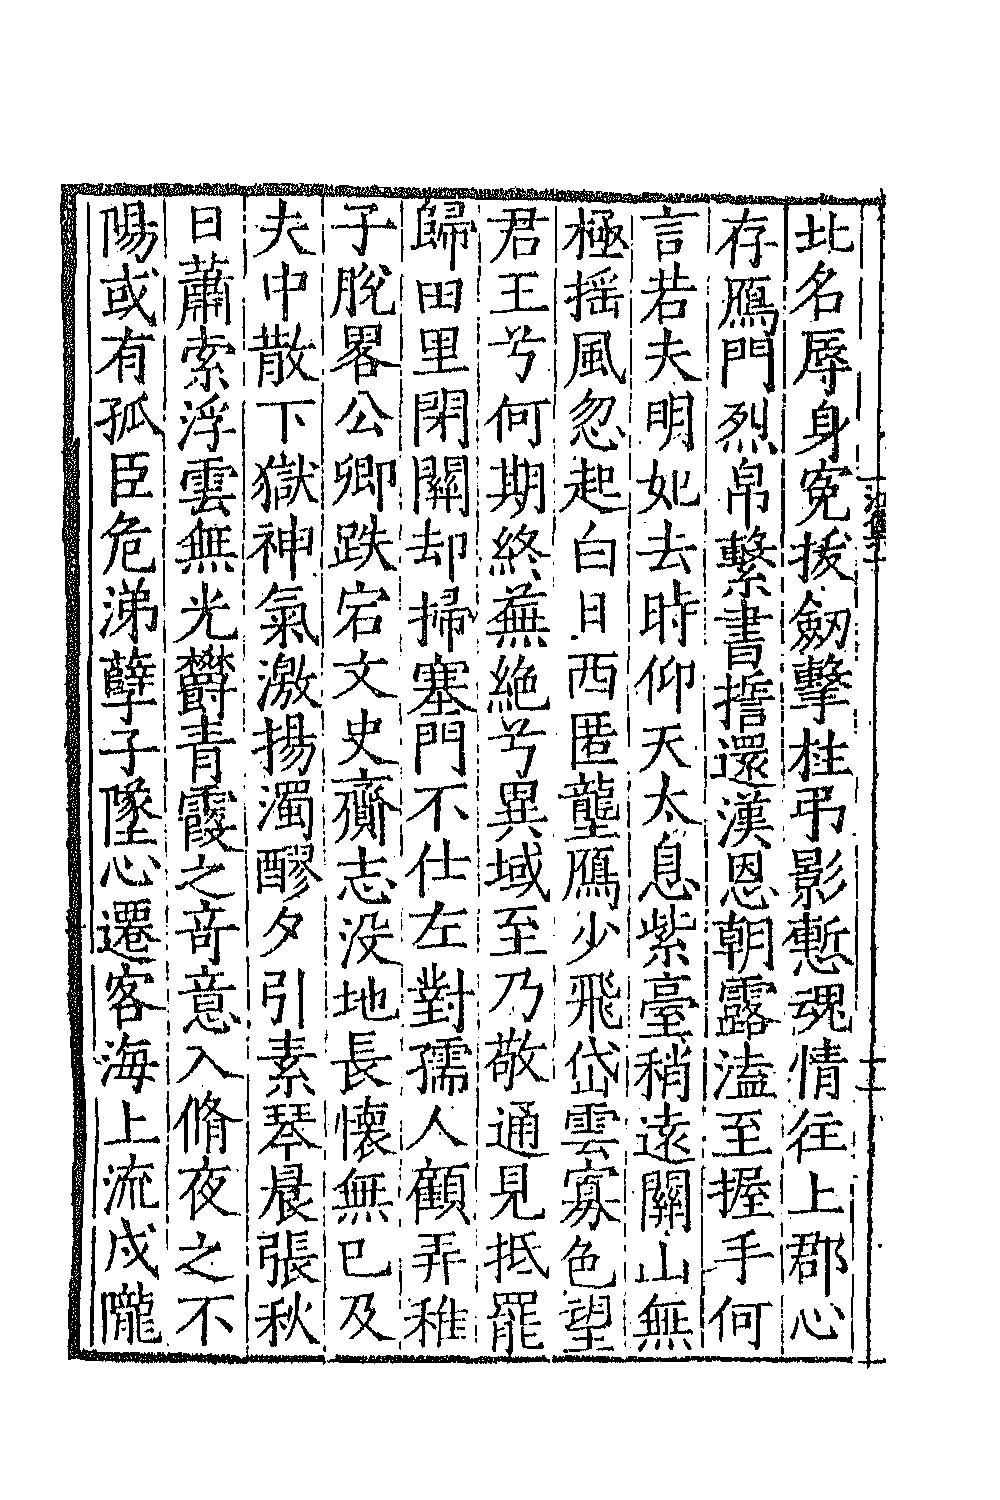 北名辱身冤拔劒擊柱弔影慙魂情往上郡心
存鴈門烈帛繫書誓還漢恩朝露溘至握手何
言若夫明妃去時仰天太息紫臺稍遠關山無
極揺風忽起白日西匿壟鴈少飛岱雲寡色望
君王兮何期終蕪絶兮異域至乃敬通見抵罷
歸田里閉關却掃塞門不仕左對孺人顧弄稚
子脫畧公卿跌宕文史齎志没地長懷無已及
夫中散下獄神氣激揚濁醪夕引素琴晨張秋
日蕭索浮雲無光欝青霞之竒意入脩夜之不
暘或有孤臣危涕孽子墜心遷客海上流戍隴